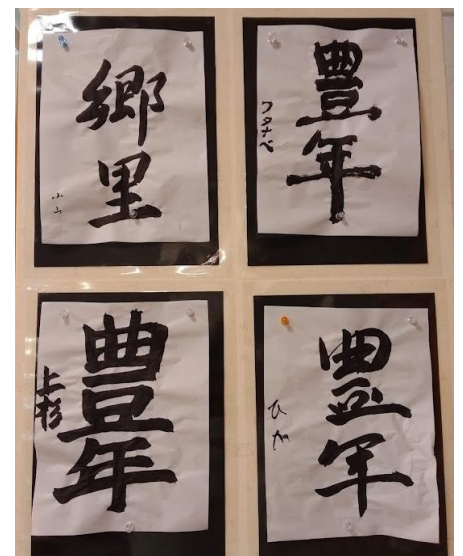 郷里
小山
豊年
ワタナベ
豊年
上杉
豊年